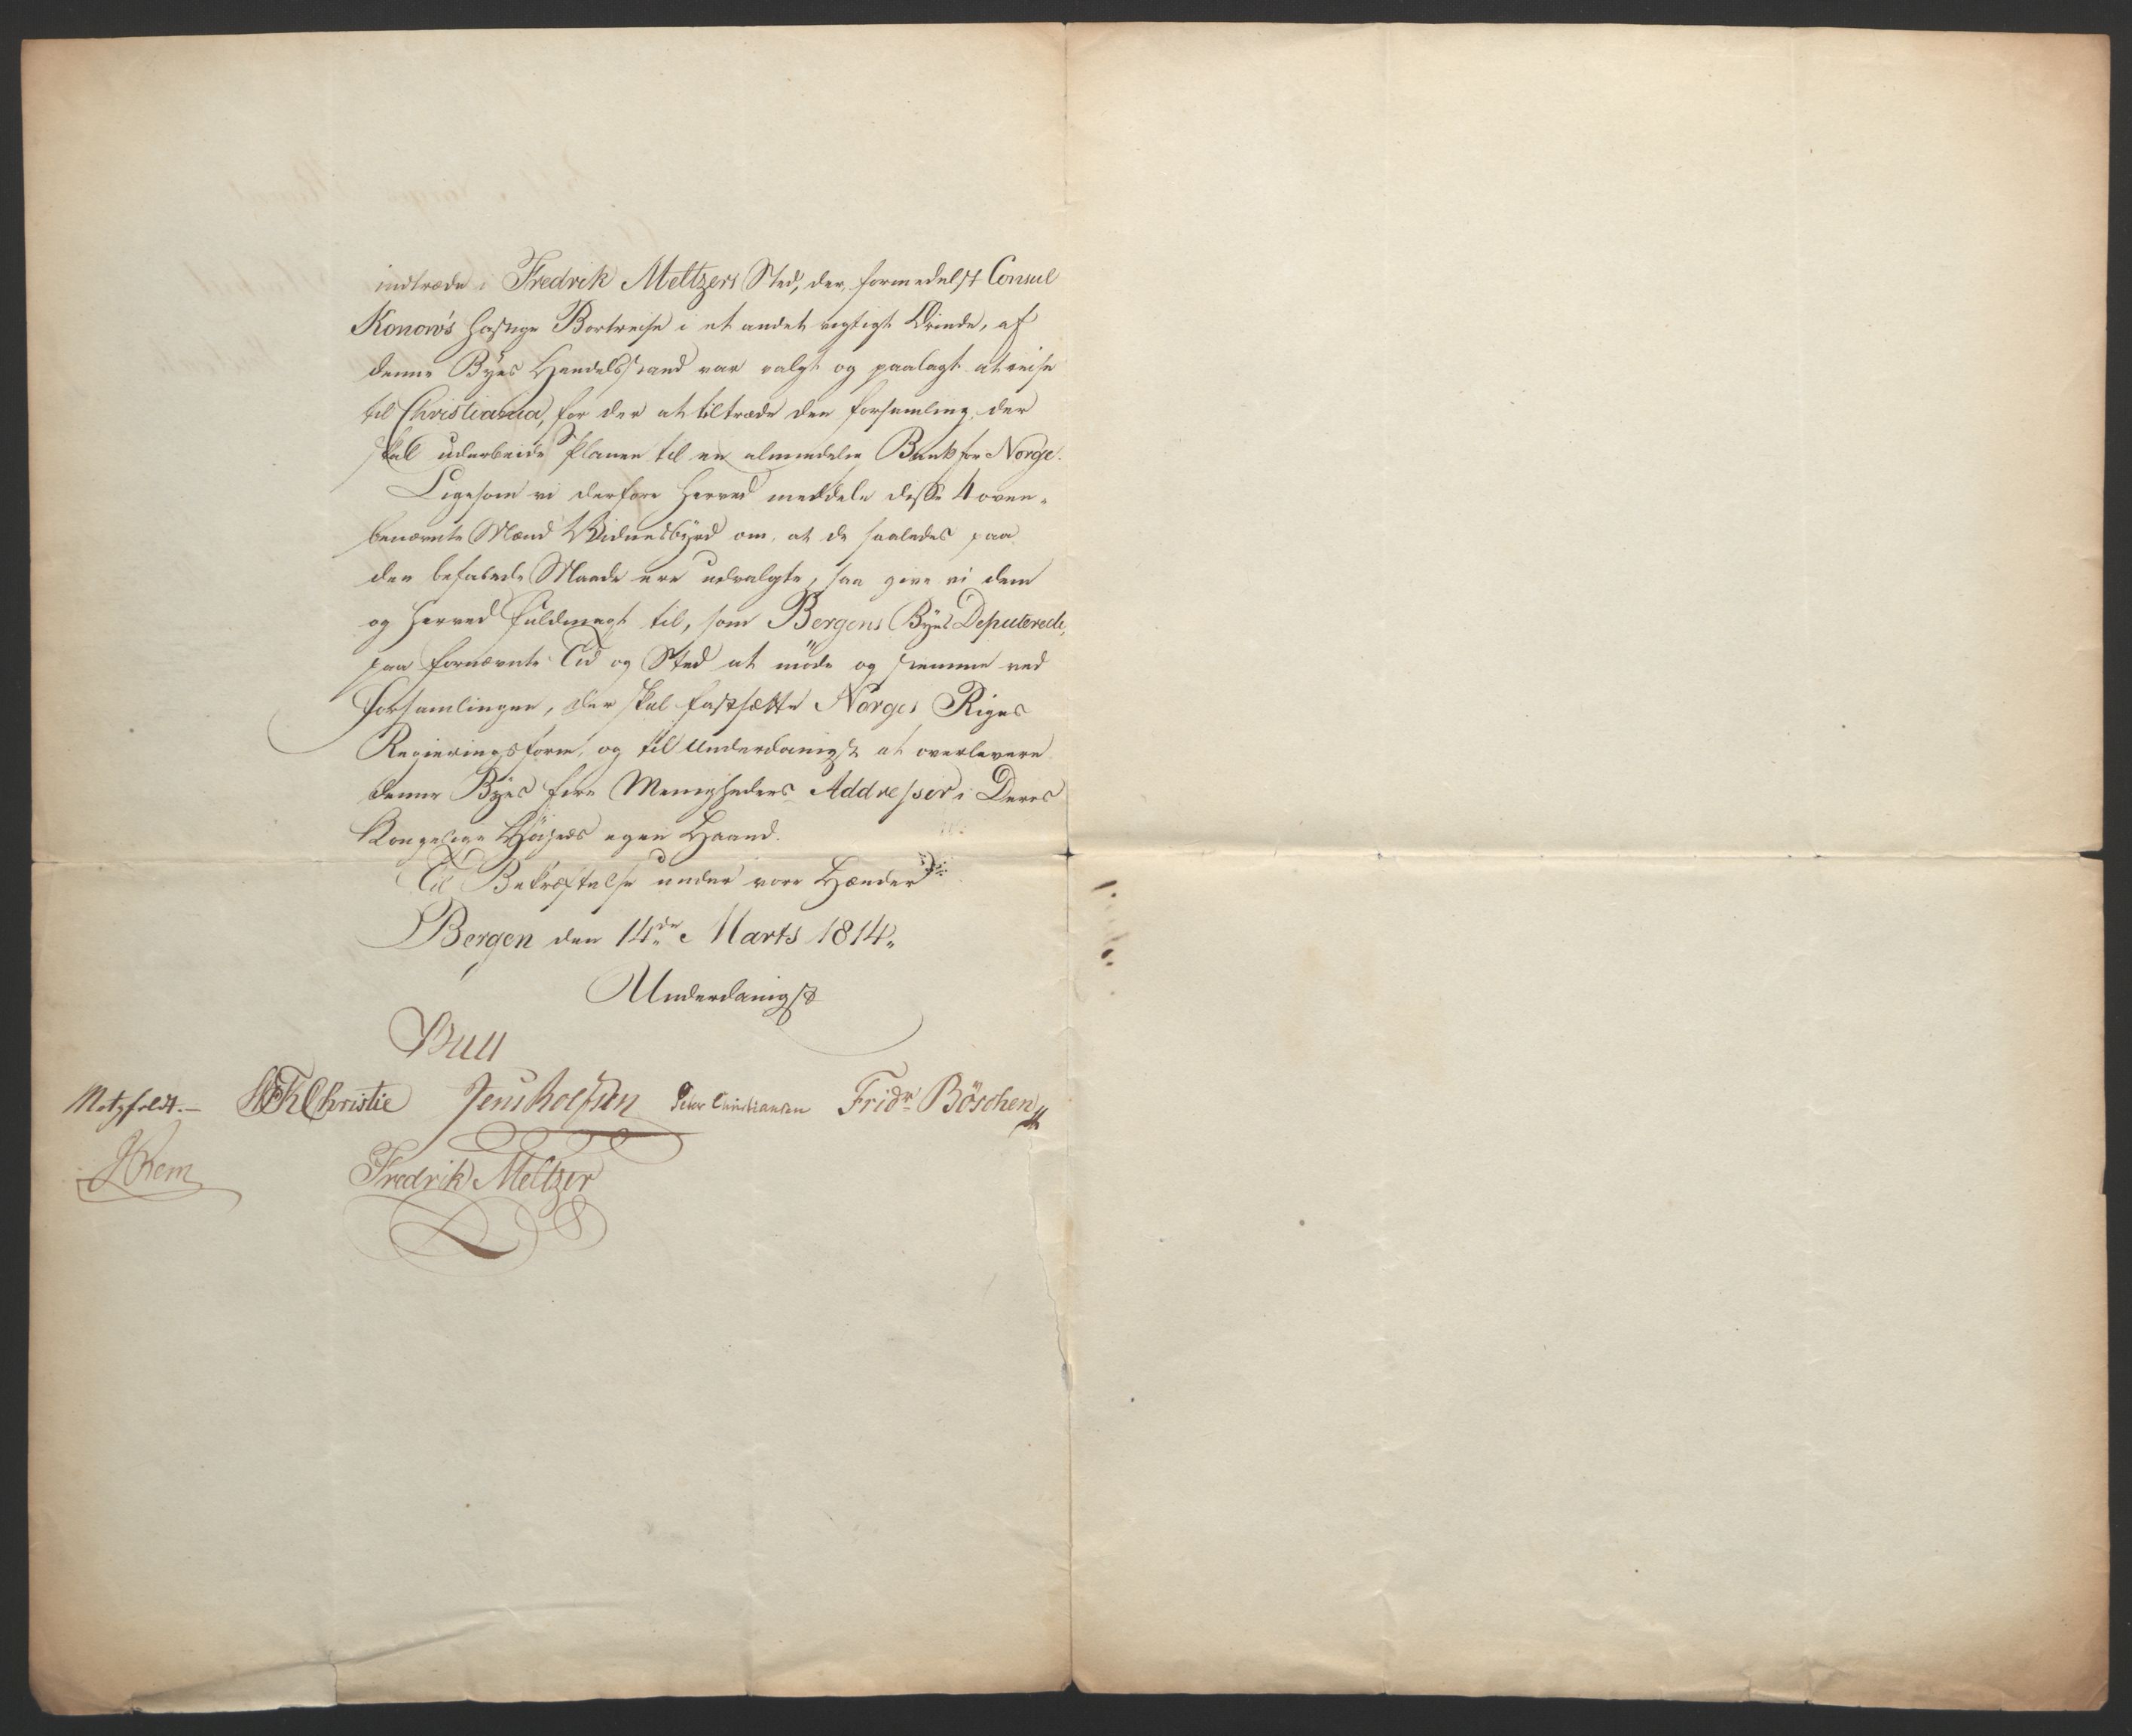 indtræde i Fredrik Meltzers Sted, der, formedelst Consul
Konow's hastige Bortreise i et andet vigtigt Ærinde, af
denne Byes Handelsstand var valgt og paalagt at reise
til Christiania, for der at tiltræde den Forsamling, der
skal udarbeide Planen til en almindelig Bank for Norge.
Ligesom vi derfore herved meddele disse 4 oven-
benævnte Mænd Vidnesbyrd om, at de saaledes paa
den befalede Maade ere udvalgte, saa give vi dem
og herved Fuldmagt til, som Bergens Byes Deputerede,
paa fornævnte Tid og Sted at møde og stemme ved
Forsamlingen, der skal fastsætte Norges Riges
Regieringsform, og til underdanigst at overlevere
denne Byes fire Menigheders Addresser i Deres
Kongelige Høiheds egen Haand.
Til Bekræftelse under vore Hænder
Bergen den 14de Marts 1814.
Underdanigst
Bull
Motzfeldt. WFKChristie Jens Rolfsen Peder Christiansen Fridr Böschen
JRem Fredrik Meltzer